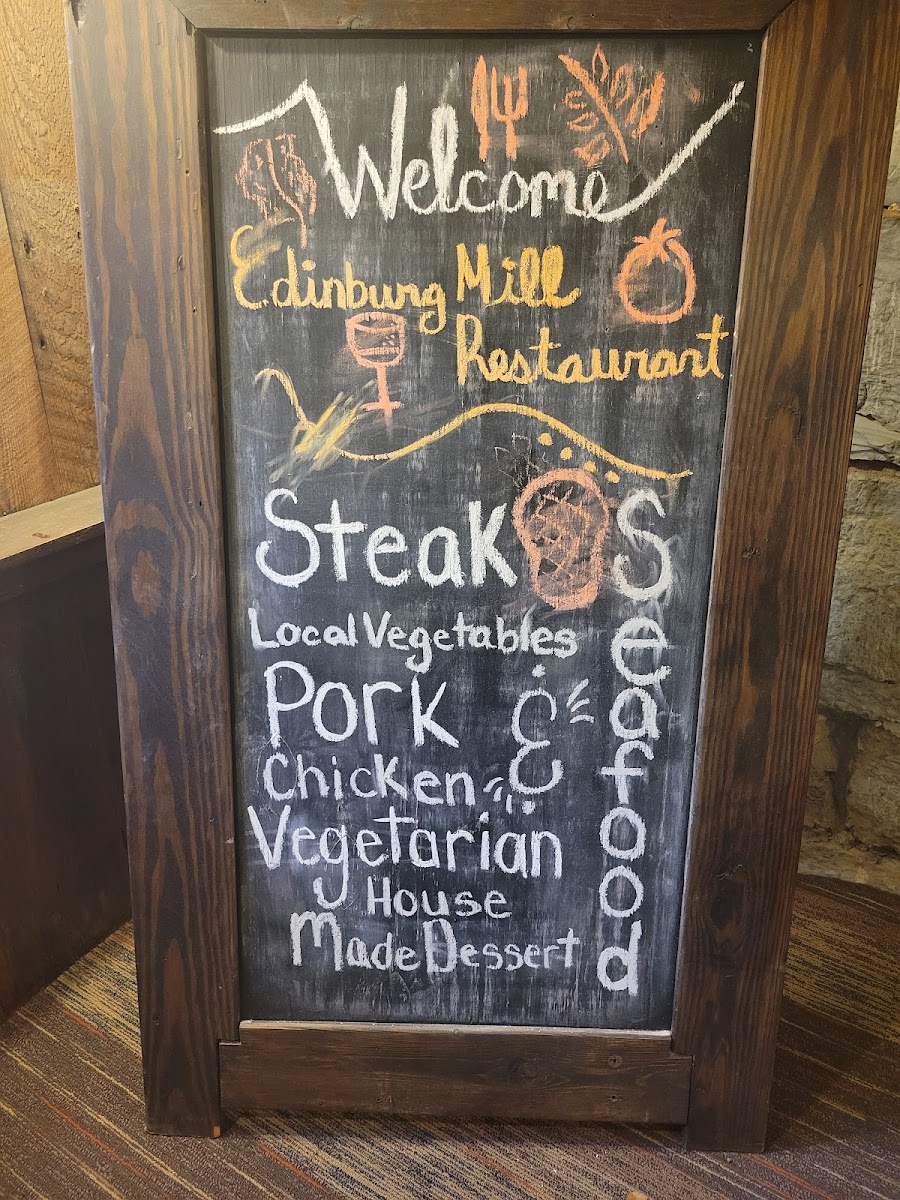 Welcome
Edinburg Mill
Restaurant
Steak
Local Vegetables
Pork
Chicken
Vegetarian
House
Made Dessert
Seafood